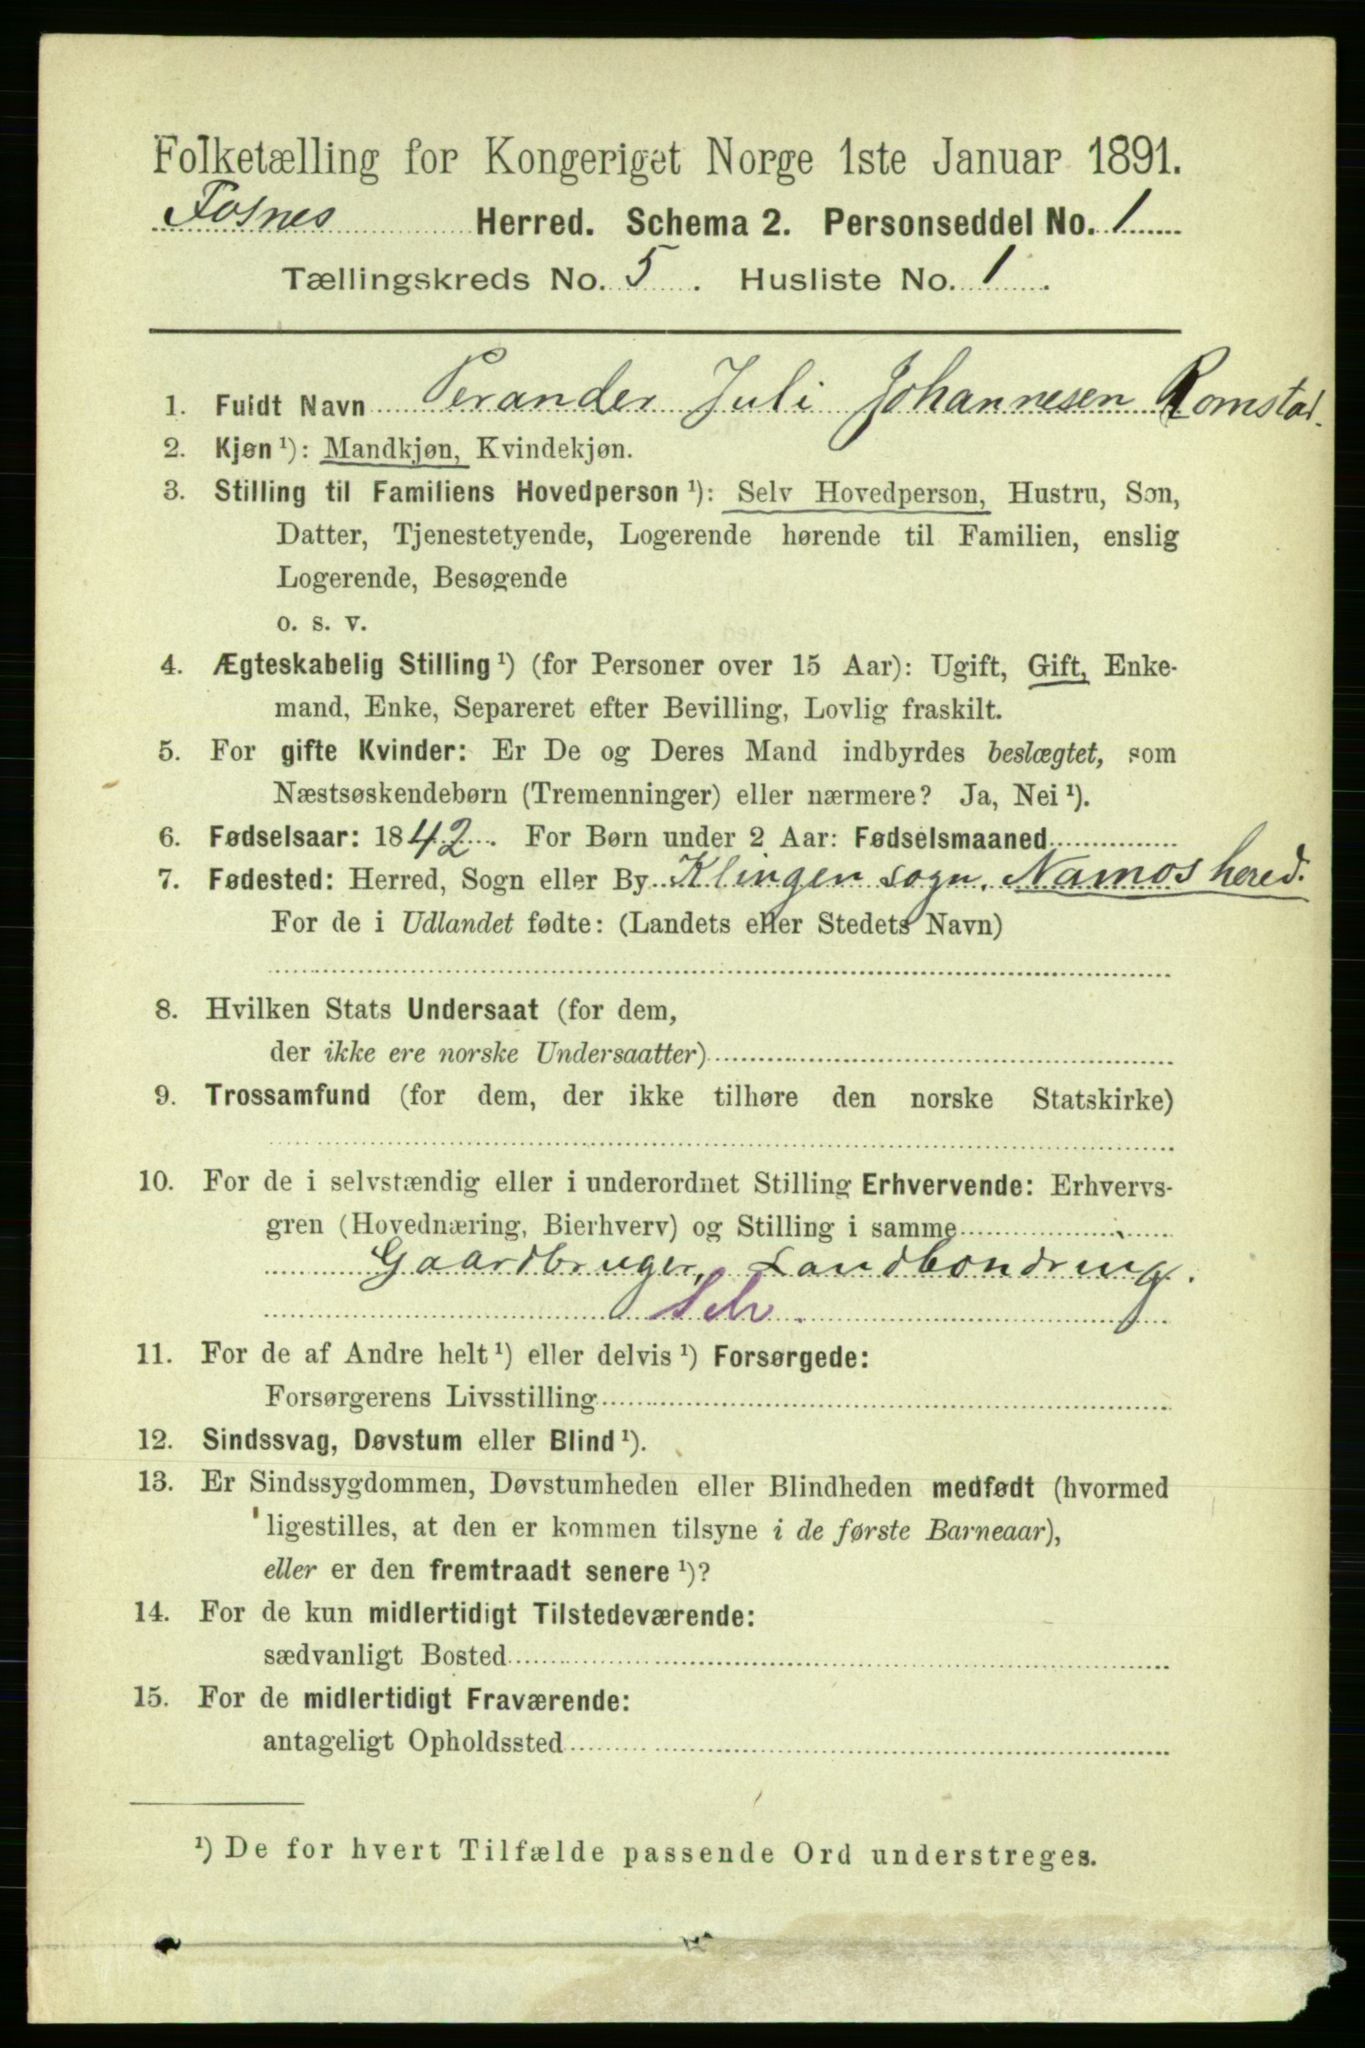 Folketælling for Kongeriget Norge 1ste Januar 1891.
Fosnes Herred. Schema 2. Personseddel No. 1
Tællingskreds No. 5. Husliste No. 1.
1. Fuldt Navn Perander Juli Johannesen Romstad.
2. Kjøn ¹): Mandkjøn, Kvindekjøn.
3. Stilling til Familiens Hovedperson ¹): Selv Hovedperson, Hustru, Søn,
Datter, Tjenestetyende, Logerende hørende til Familien, enslig
Logerende, Besøgende
o. s. v.
4. Ægteskabelig Stilling ¹) (for Personer over 15 Aar): Ugift, Gift, Enke-
mand, Enke, Separeret efter Bevilling, Lovlig fraskilt.
5. For gifte Kvinder: Er De og Deres Mand indbyrdes beslægtet, som
Næstsøskendebørn (Tremenninger) eller nærmere? Ja, Nei ¹).
6. Fødselsaar: 1842. For Børn under 2 Aar: Fødselsmaaned
7. Fødested: Herred, Sogn eller By Klingen sogn. Namos hered.
For de i Udlandet fødte: (Landets eller Stedets Navn)
8. Hvilken Stats Undersaat (for dem,
der ikke ere norske Undersaatter)
9. Trossamfund (for dem, der ikke tilhøre den norske Statskirke)
10. For de i selvstændig eller i underordnet Stilling Erhvervende: Erhvervs-
gren (Hovednæring, Bierhverv) og Stilling i samme
Gaardbruger, Landbondring.
Selv.
11. For de af Andre helt ¹) eller delvis ¹) Forsørgede:
Forsørgerens Livsstilling
12. Sindssvag, Døvstum eller Blind ¹).
13. Er Sindssygdommen, Døvstumheden eller Blindheden medfødt (hvormed
ligestilles, at den er kommen tilsyne i de første Barneaar),
eller er den fremtraadt senere ¹)?
14. For de kun midlertidigt Tilstedeværende:
sædvanligt Bosted
15. For de midlertidigt Fraværende:
antageligt Opholdssted
¹) De for hvert Tilfælde passende Ord understreges.